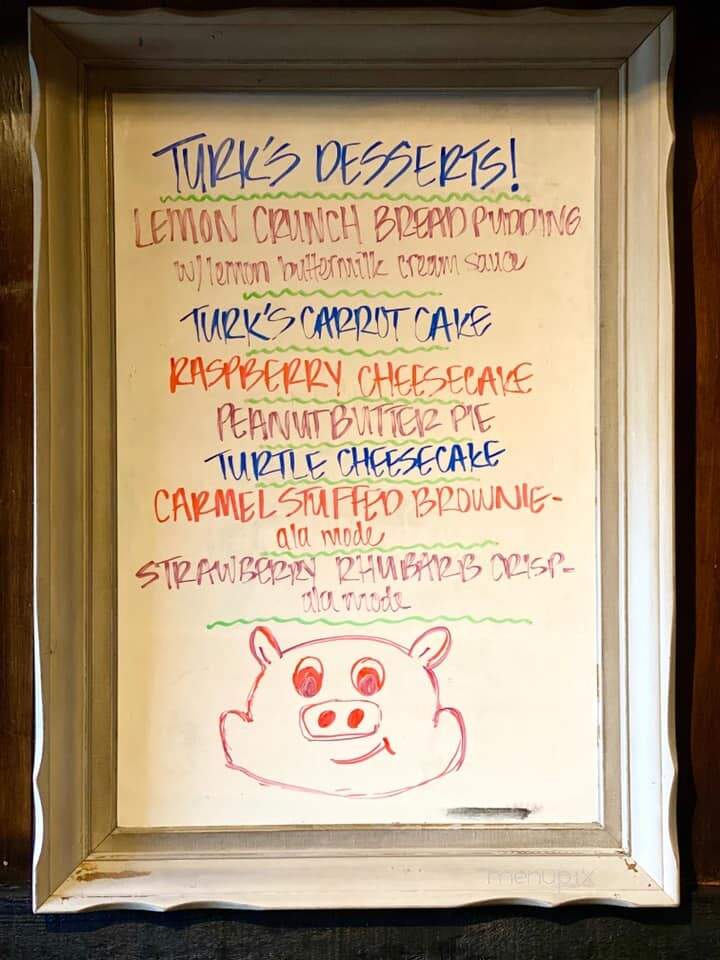 TURK'S DESSERTS!
LEMON CRUNCH BREAD PUDDING
w/ lemon buttermilk cream sauce
TURK'S CARROT CAKE
RASPBERRY CHEESECAKE
PEANUT BUTTER PIE
TURTLE CHEESECAKE
CARMEL STUFFED BROWNIE-
ala mode
STRAWBERRY RHUBARB CRISP-
ala mode
menupix